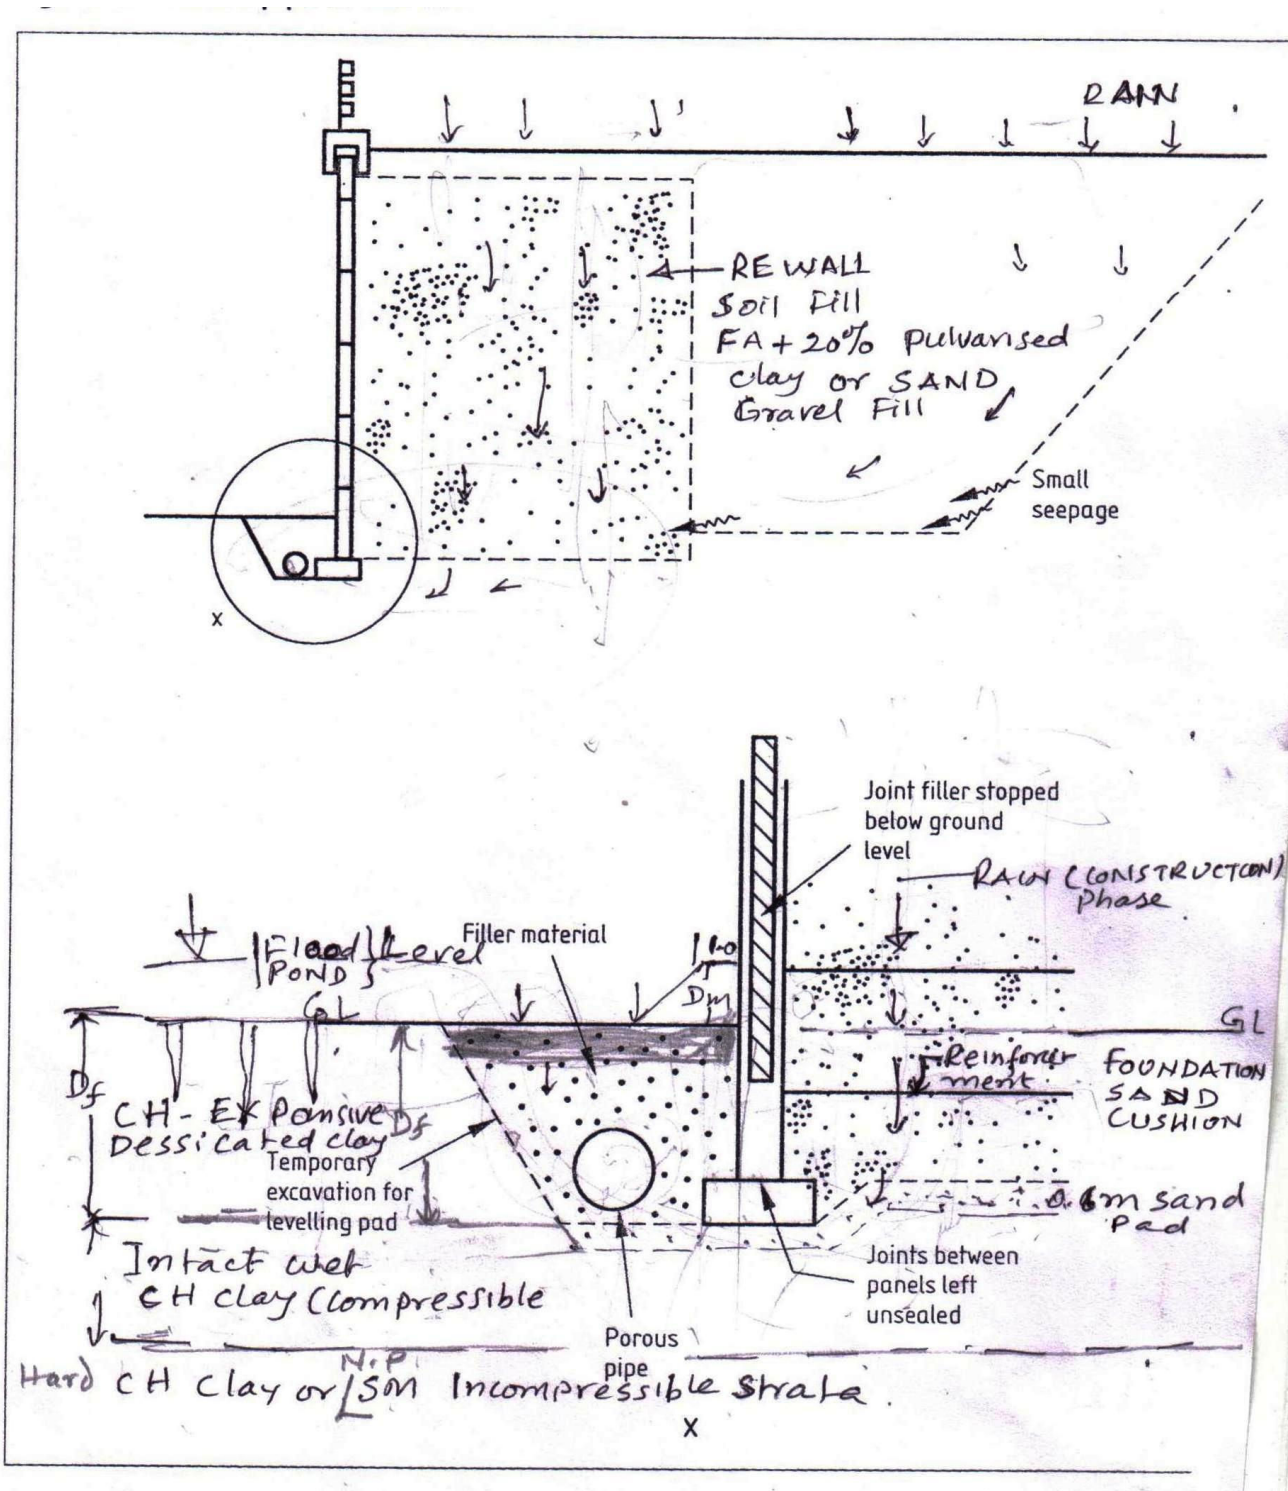 RAIN
RE WALL
Soil Fill
FA + 20% Pulvarised
Clay or SAND
Gravel Fill
Small
seepage
x
Joint filler stopped
below ground
level
RAIN (CONSTRUCTION)
Phase
Filler material
Flood Level
POND
1.0
Dm
GL
GL
Reinforce
ment
FOUNDATION
SAND
CUSHION
Df
Df
CH - EXPansive
Dessicated clay
Temporary
excavation for
levelling pad
0.6m sand
Pad
Intact wet
CH clay (compressible
Joints between
panels left
unsealed
Porous
pipe
N.P.
Hard CH Clay or SM Incompressible Strata
X